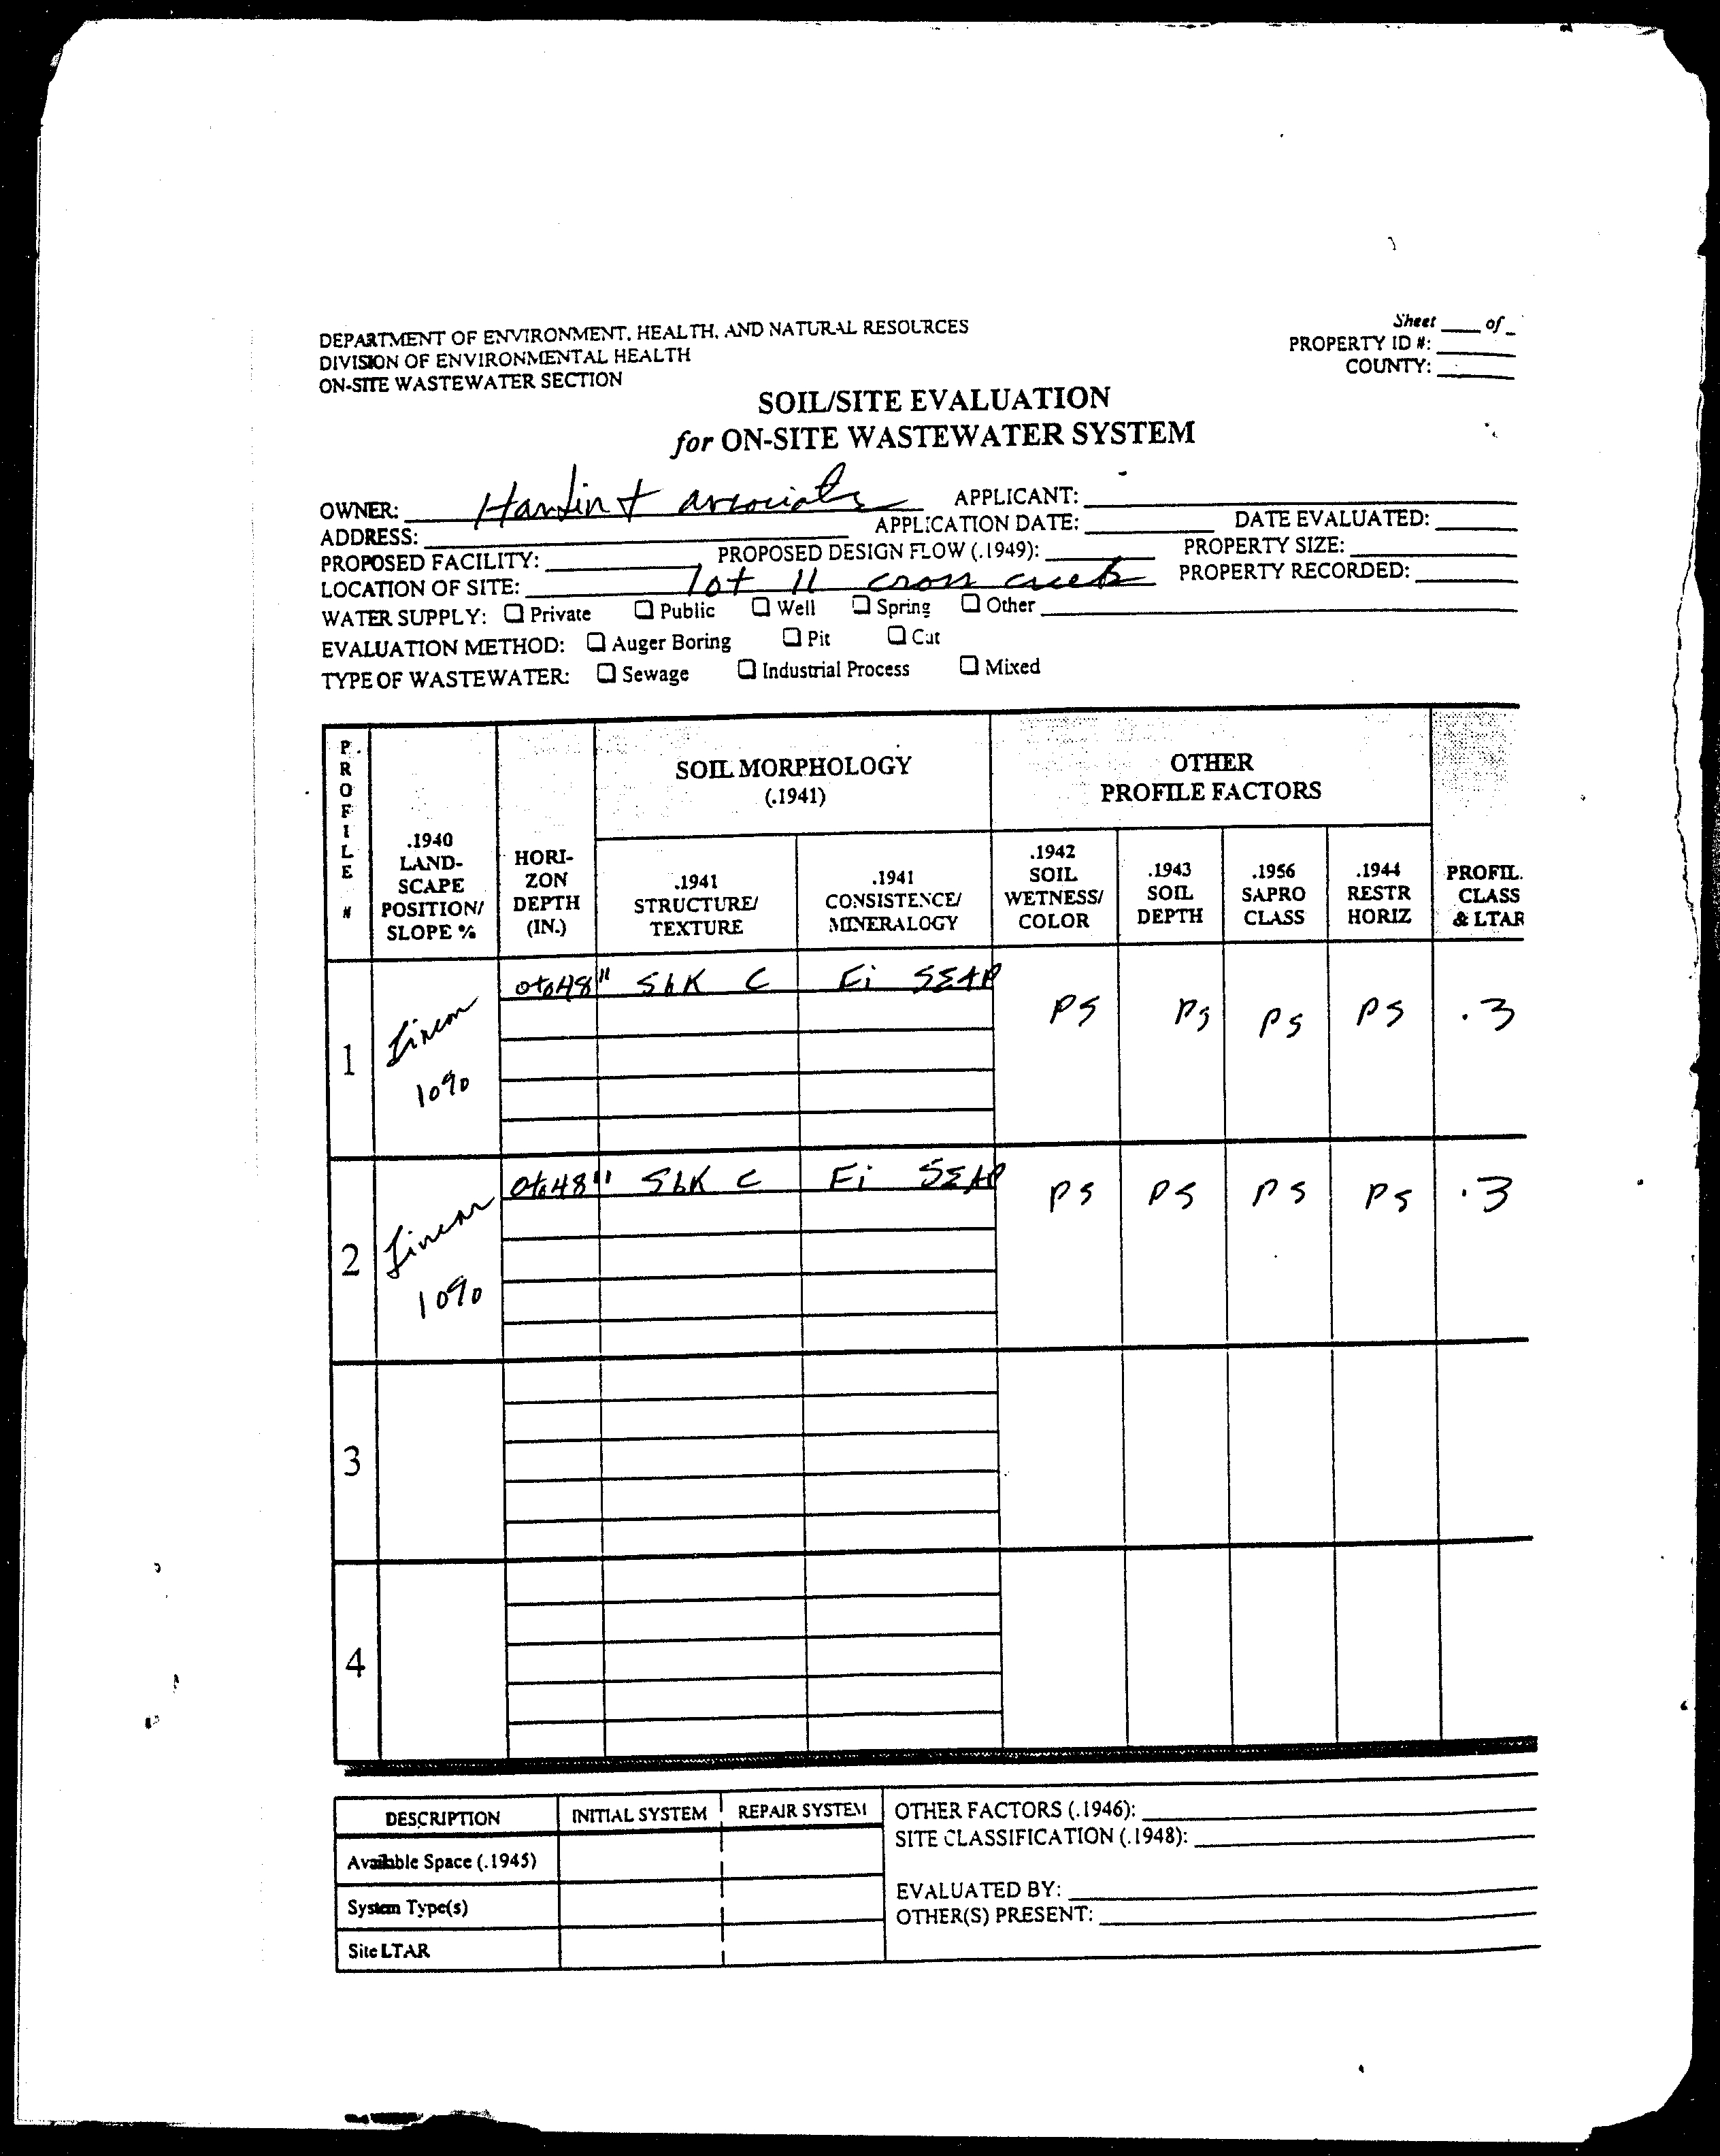 Sheet ____ of _
DEPARTMENT OF ENVIRONMENT, HEALTH, AND NATURAL RESOURCES
PROPERTY ID #: ____
DIVISION OF ENVIRONMENTAL HEALTH
COUNTY: ____
ON-SITE WASTEWATER SECTION
SOIL/SITE EVALUATION
for ON-SITE WASTEWATER SYSTEM
OWNER: & associates APPLICANT:
ADDRESS: APPLICATION DATE: DATE EVALUATED:
PROPOSED FACILITY: PROPOSED DESIGN FLOW (.1949): PROPERTY SIZE:
LOCATION OF SITE: lot 11 cross creek PROPERTY RECORDED:
WATER SUPPLY: ☐ Private ☐ Public ☐ Well ☐ Spring ☐ Other
EVALUATION METHOD: ☐ Auger Boring ☐ Pit ☐ Cut
TYPE OF WASTEWATER: ☐ Sewage ☐ Industrial Process ☐ Mixed
PROFILE #
.1940 LAND-SCAPE POSITION/ SLOPE %
HORI-ZON DEPTH (IN.)
SOIL MORPHOLOGY
(.1941)
OTHER
PROFILE FACTORS
.1941 STRUCTURE/ TEXTURE
.1941 CONSISTENCE/ MINERALOGY
.1942 SOIL WETNESS/ COLOR
.1943 SOIL DEPTH
.1956 SAPRO CLASS
.1944 RESTR HORIZ
PROFIL. CLASS & LTAR
1 Linear 10% 0to48" SbK C Fi SEXP PS PS PS PS .3
2 Linear 10% 0to48" SbK C Fi SEXP PS PS PS PS .3
3
4
DESCRIPTION INITIAL SYSTEM REPAIR SYSTEM
Available Space (.1945)
System Type(s)
Site LTAR
OTHER FACTORS (.1946):
SITE CLASSIFICATION (.1948):
EVALUATED BY:
OTHER(S) PRESENT: